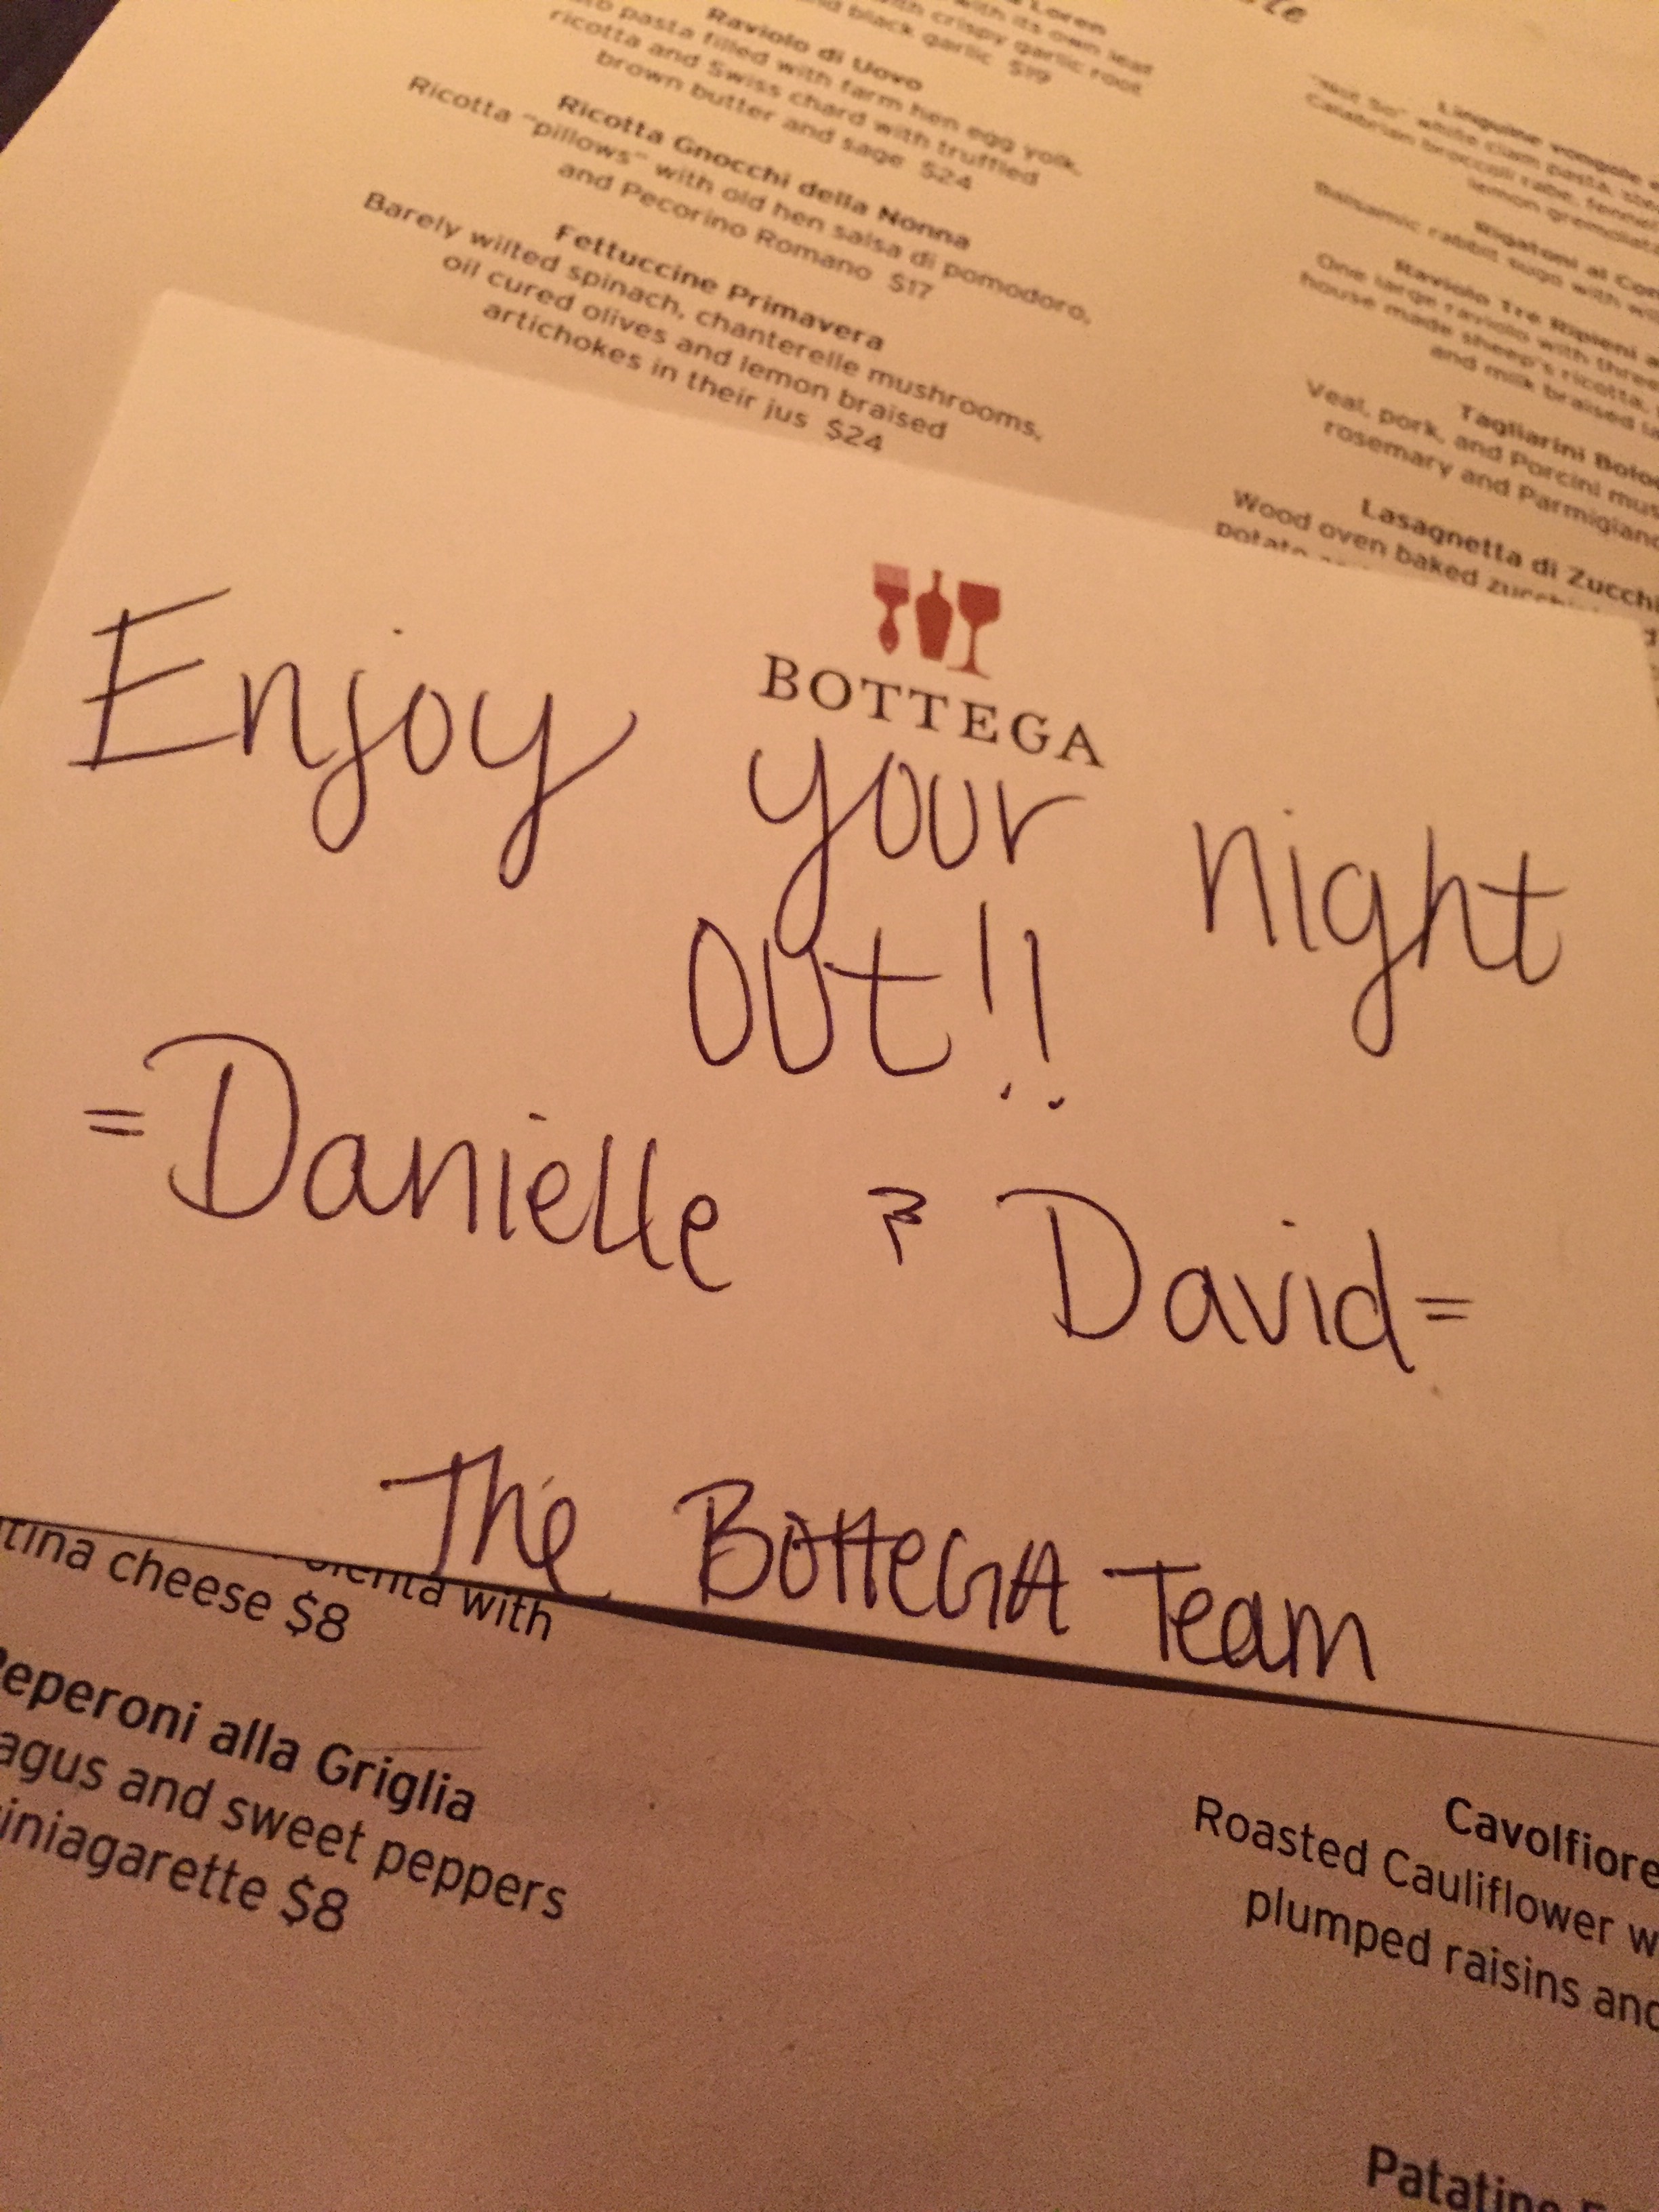 Loren
with its own leaf
with crispy garlic root
and black garlic $19
Raviolo di Uovo
pasta filled with farm hen egg yolk,
ricotta and Swiss chard with truffled
brown butter and sage $24
Ricotta Gnocchi della Nonna
Ricotta “pillows” with old hen salsa di pomodoro,
and Pecorino Romano $17
Fettuccine Primavera
Barely wilted spinach, chanterelle mushrooms,
oil cured olives and lemon braised
artichokes in their jus $24
Linguine vongole
"Not So" white clam pasta,
Calabrian broccoli rabe, fennel
lemon gremolata
Rigatoni al
Balsamic rabbit sugo with
Raviolo Tre Ripieni
One large raviolo with three
house made sheep's ricotta,
and milk braised
Tagliarini
Veal, pork, and Porcini
rosemary and
Lasagnetta di
Wood oven baked
potato
BOTTEGA
Enjoy your night
out!!
=Danielle & David=
The BotteGA Team
with
tina cheese $8
Peperoni alla Griglia
agus and sweet peppers
iniagarette $8
Cavolfiore
Roasted Cauliflower w
plumped raisins and